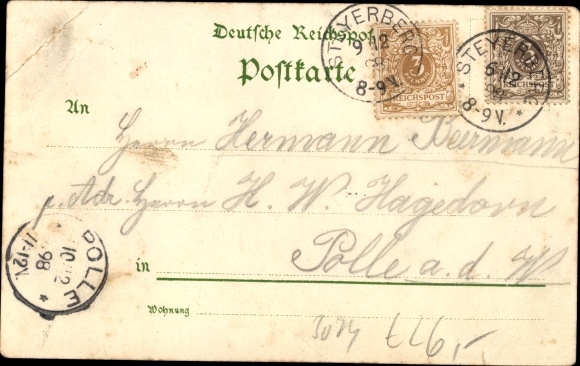 Deutsche Reichspost
Postkarte
STEYERBERG
9 12
98
8-9 V.
3
REICHSPOST
STEYERBERG
6 12
98
* 8-9 V. *
3
REICHSPOST
An
Herrn Hermann Beermann
p. Adr. Herrn H. W. Hagedorn
in Polle a. d. W
Wohnung
POLLE
10 12
98
11-12 V
*